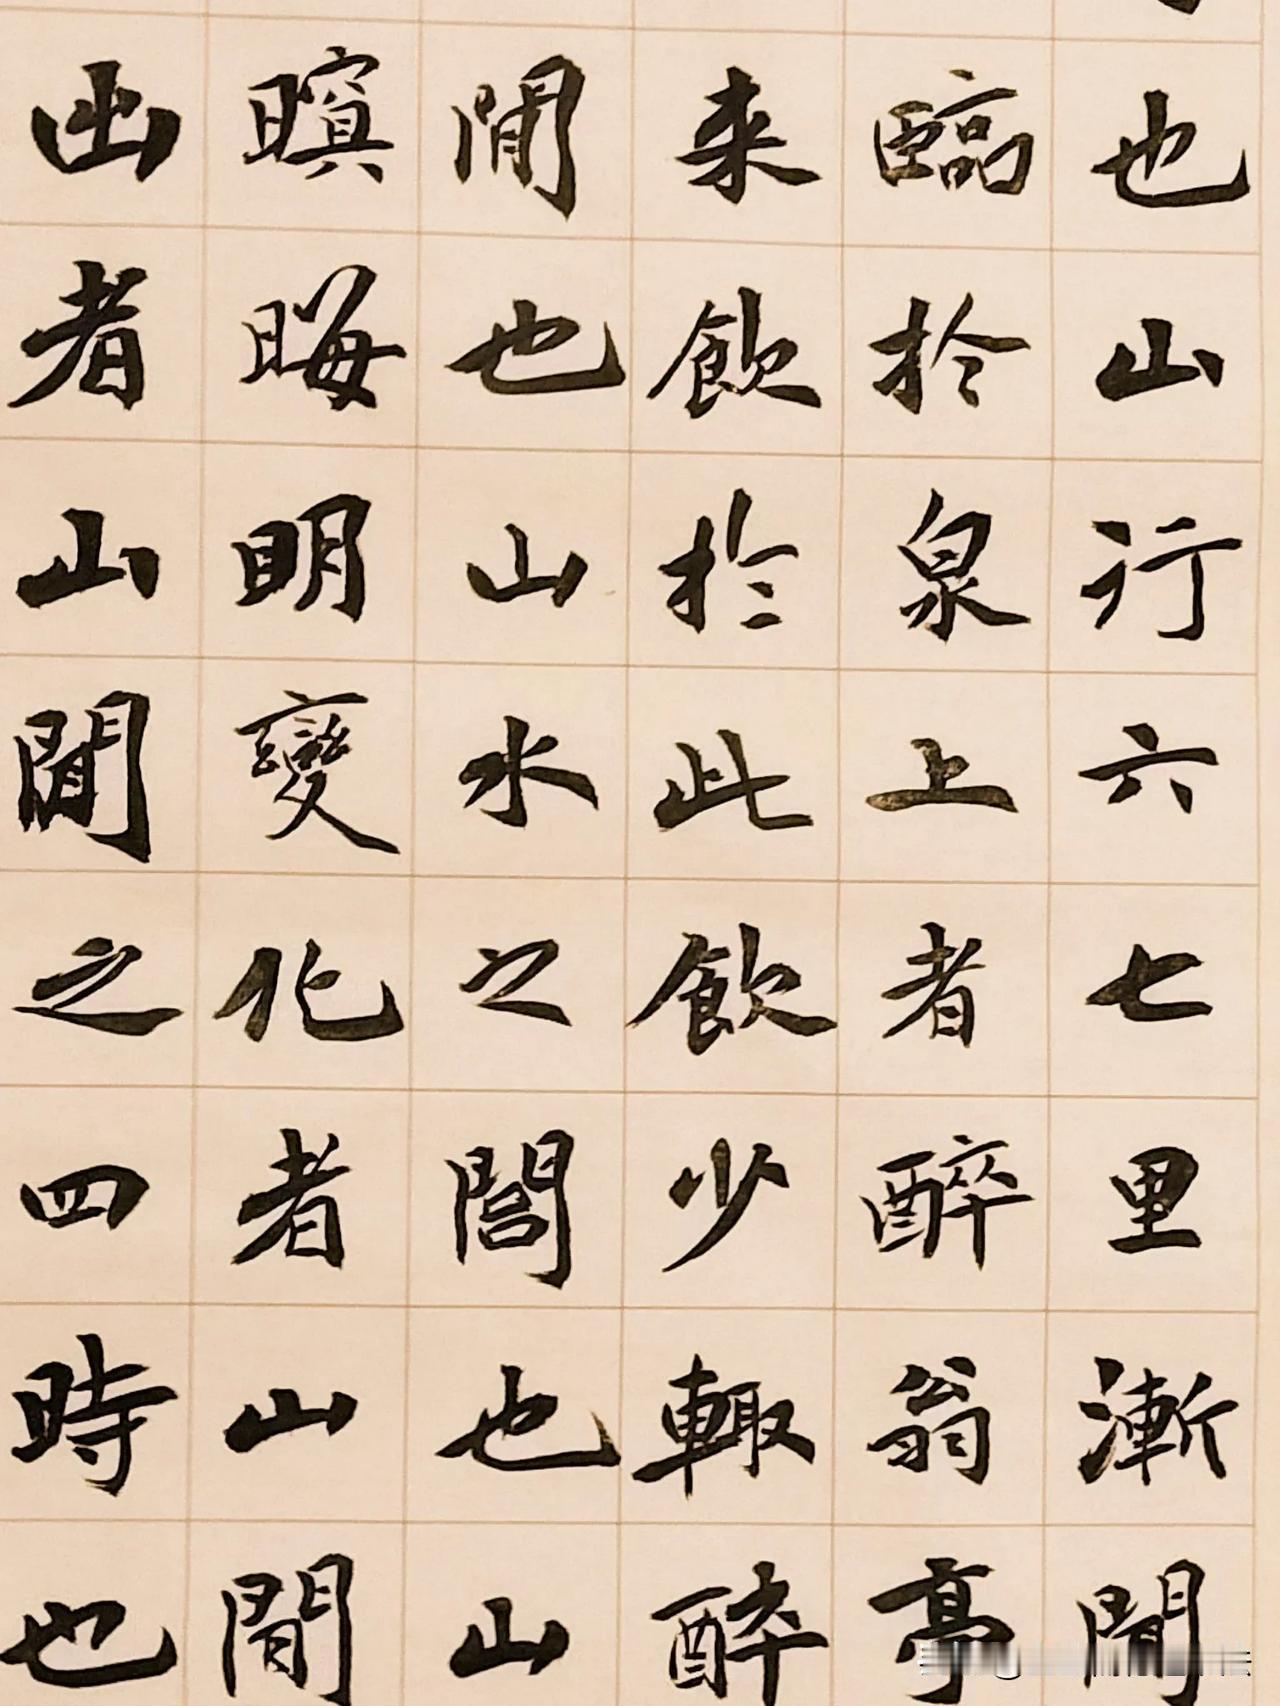 也山行六七里漸聞
臨於泉上者醉翁亭
来飲於此飲少輒醉
間也山水之也山
暝晦明變化者山間
出者山間之四時也